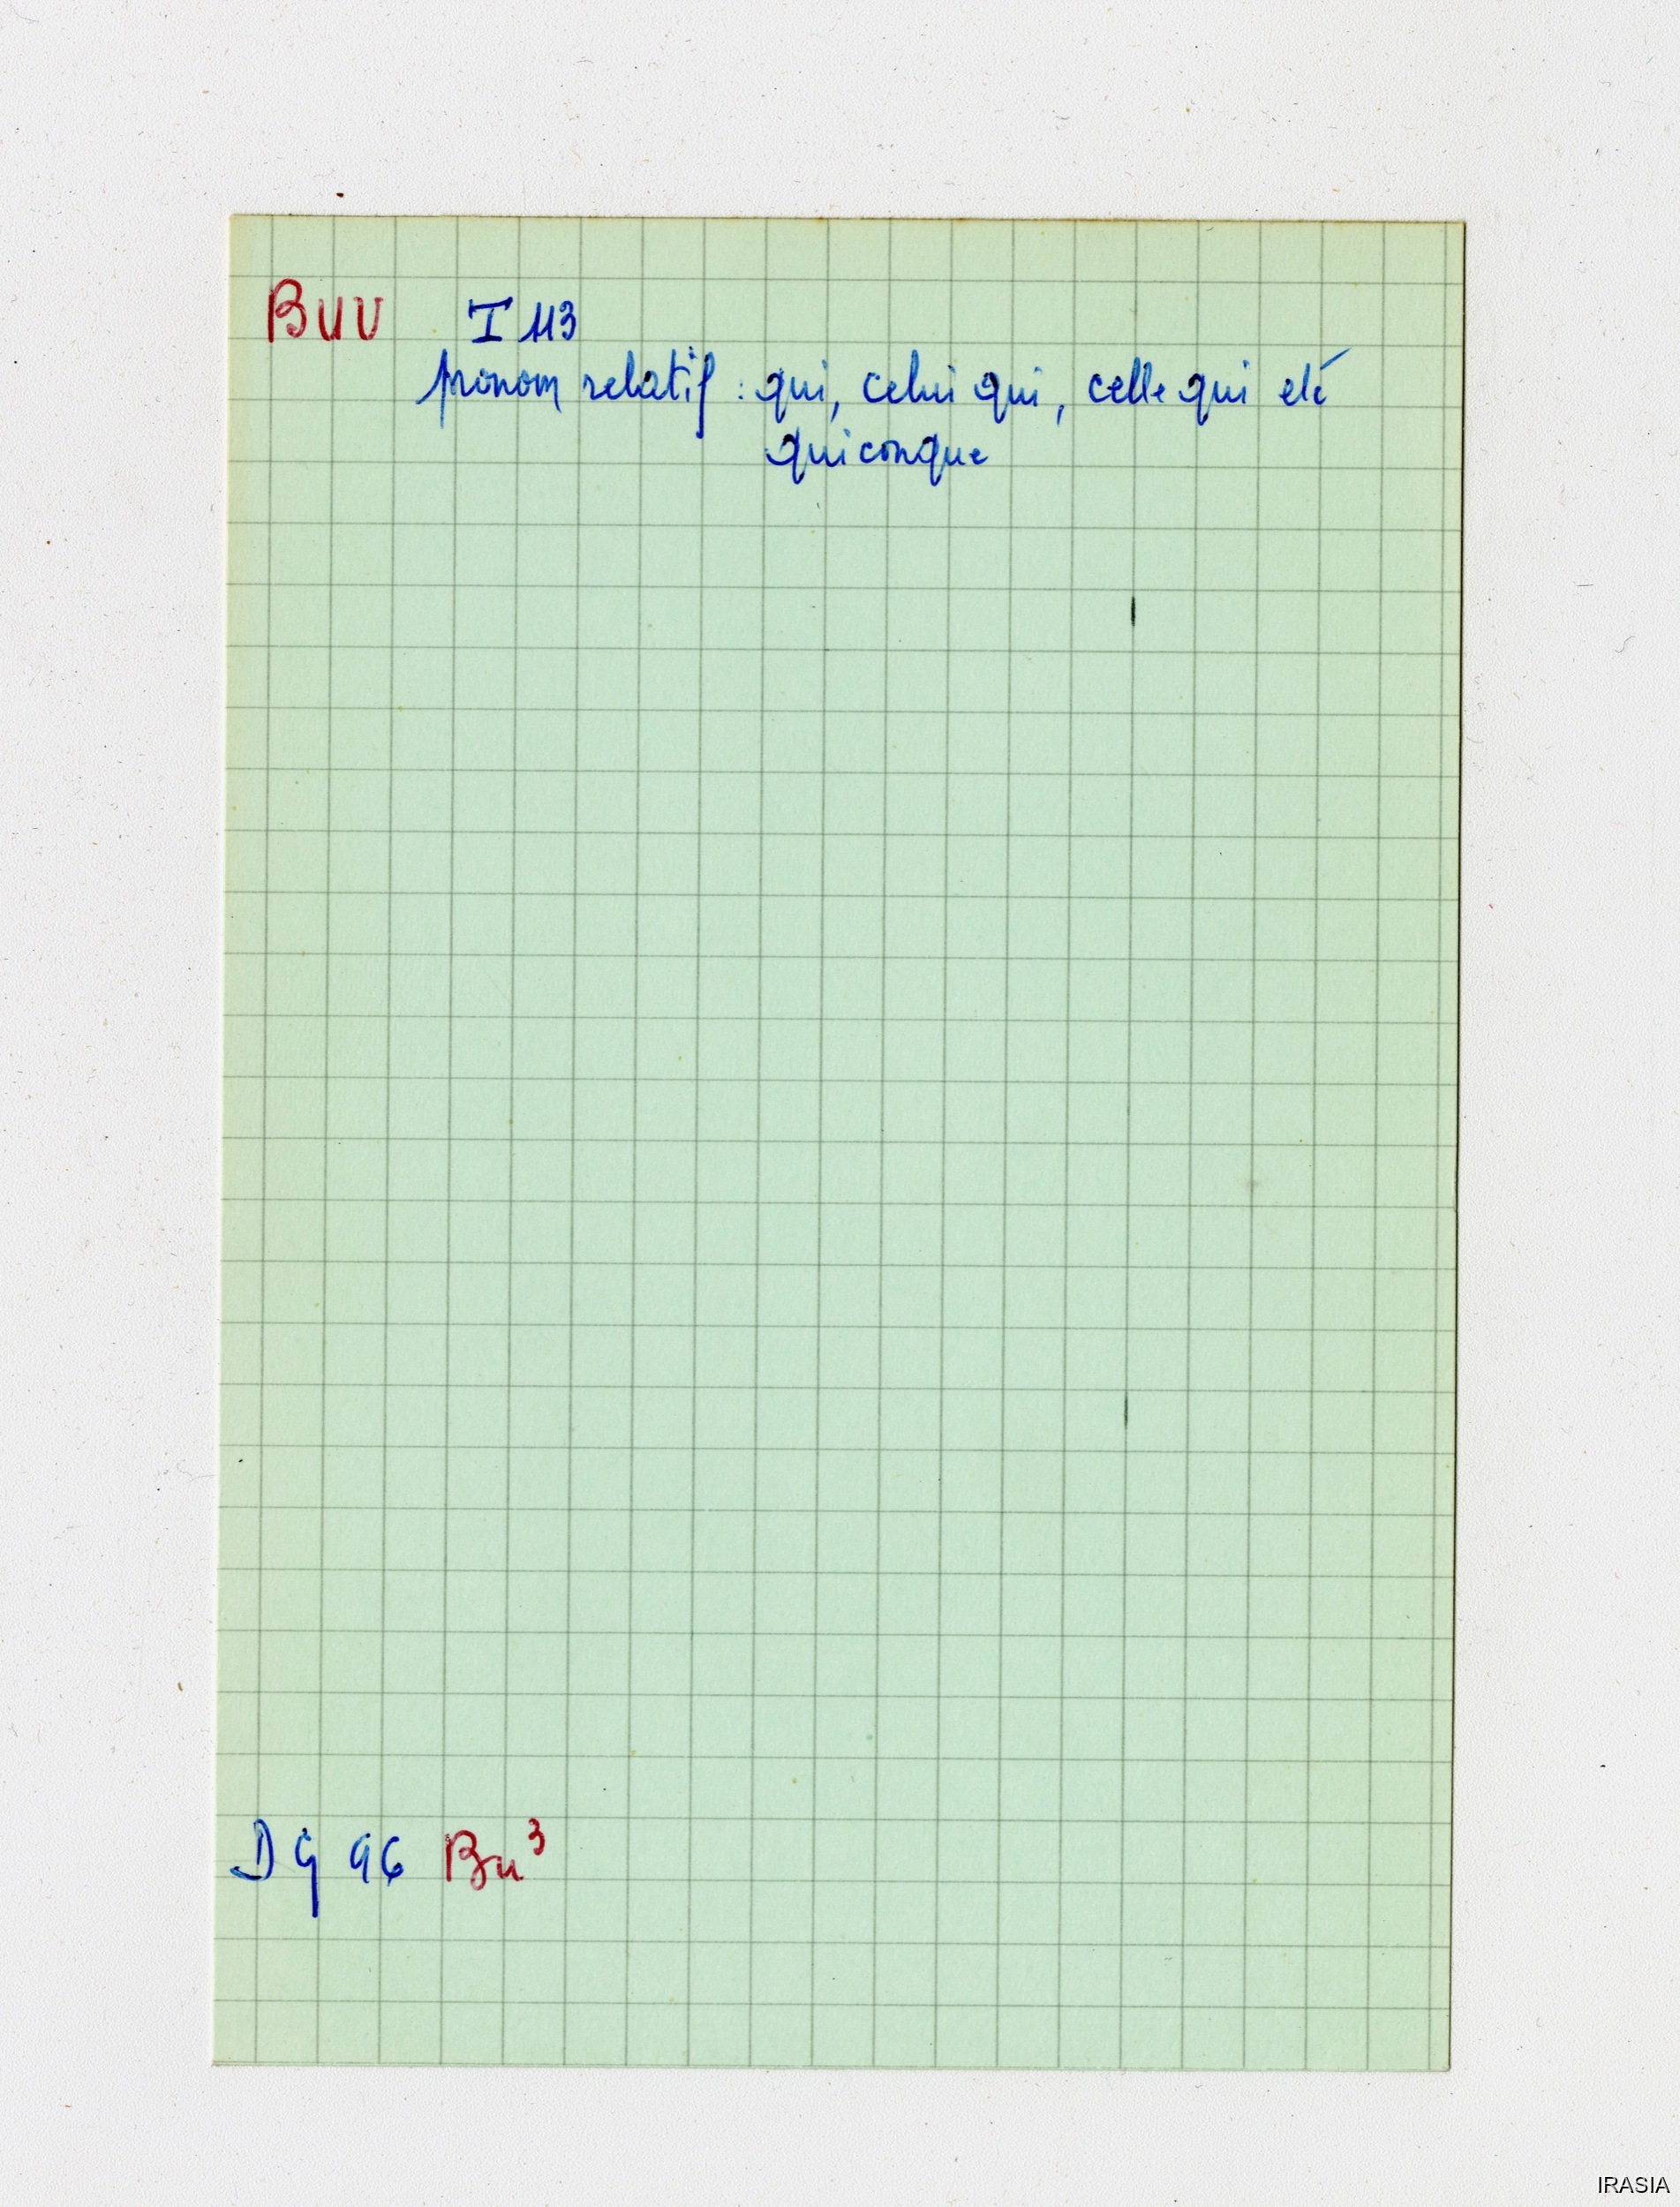 BUU I 113
pronom relatif : qui, celui qui, celle qui etc
quiconque
DG 96 Bu³
IRASIA